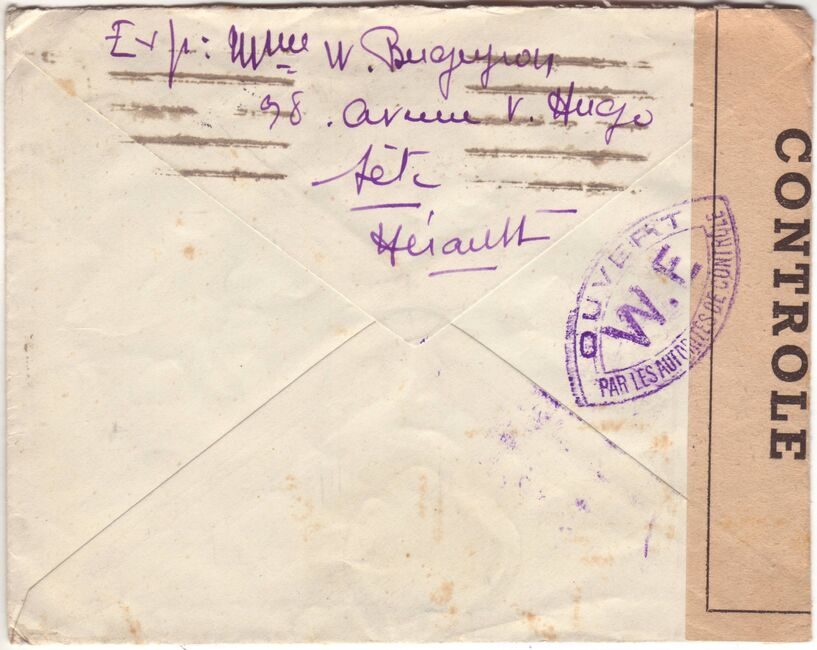 Exp: Mme W. Bergeyron
98. avenue V. Hugo
Sète
Hérault
OUVERT
W.E.
PAR LES AUTORITÉS DE CONTROLE
CONTROLE